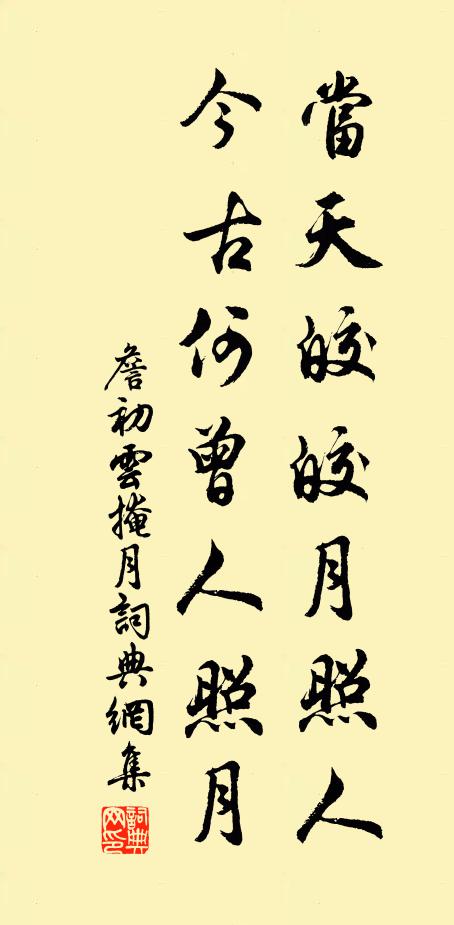 當天皎皎月照人
今古何曾人照月
詹初雲掩月詞典網集
詞典网印